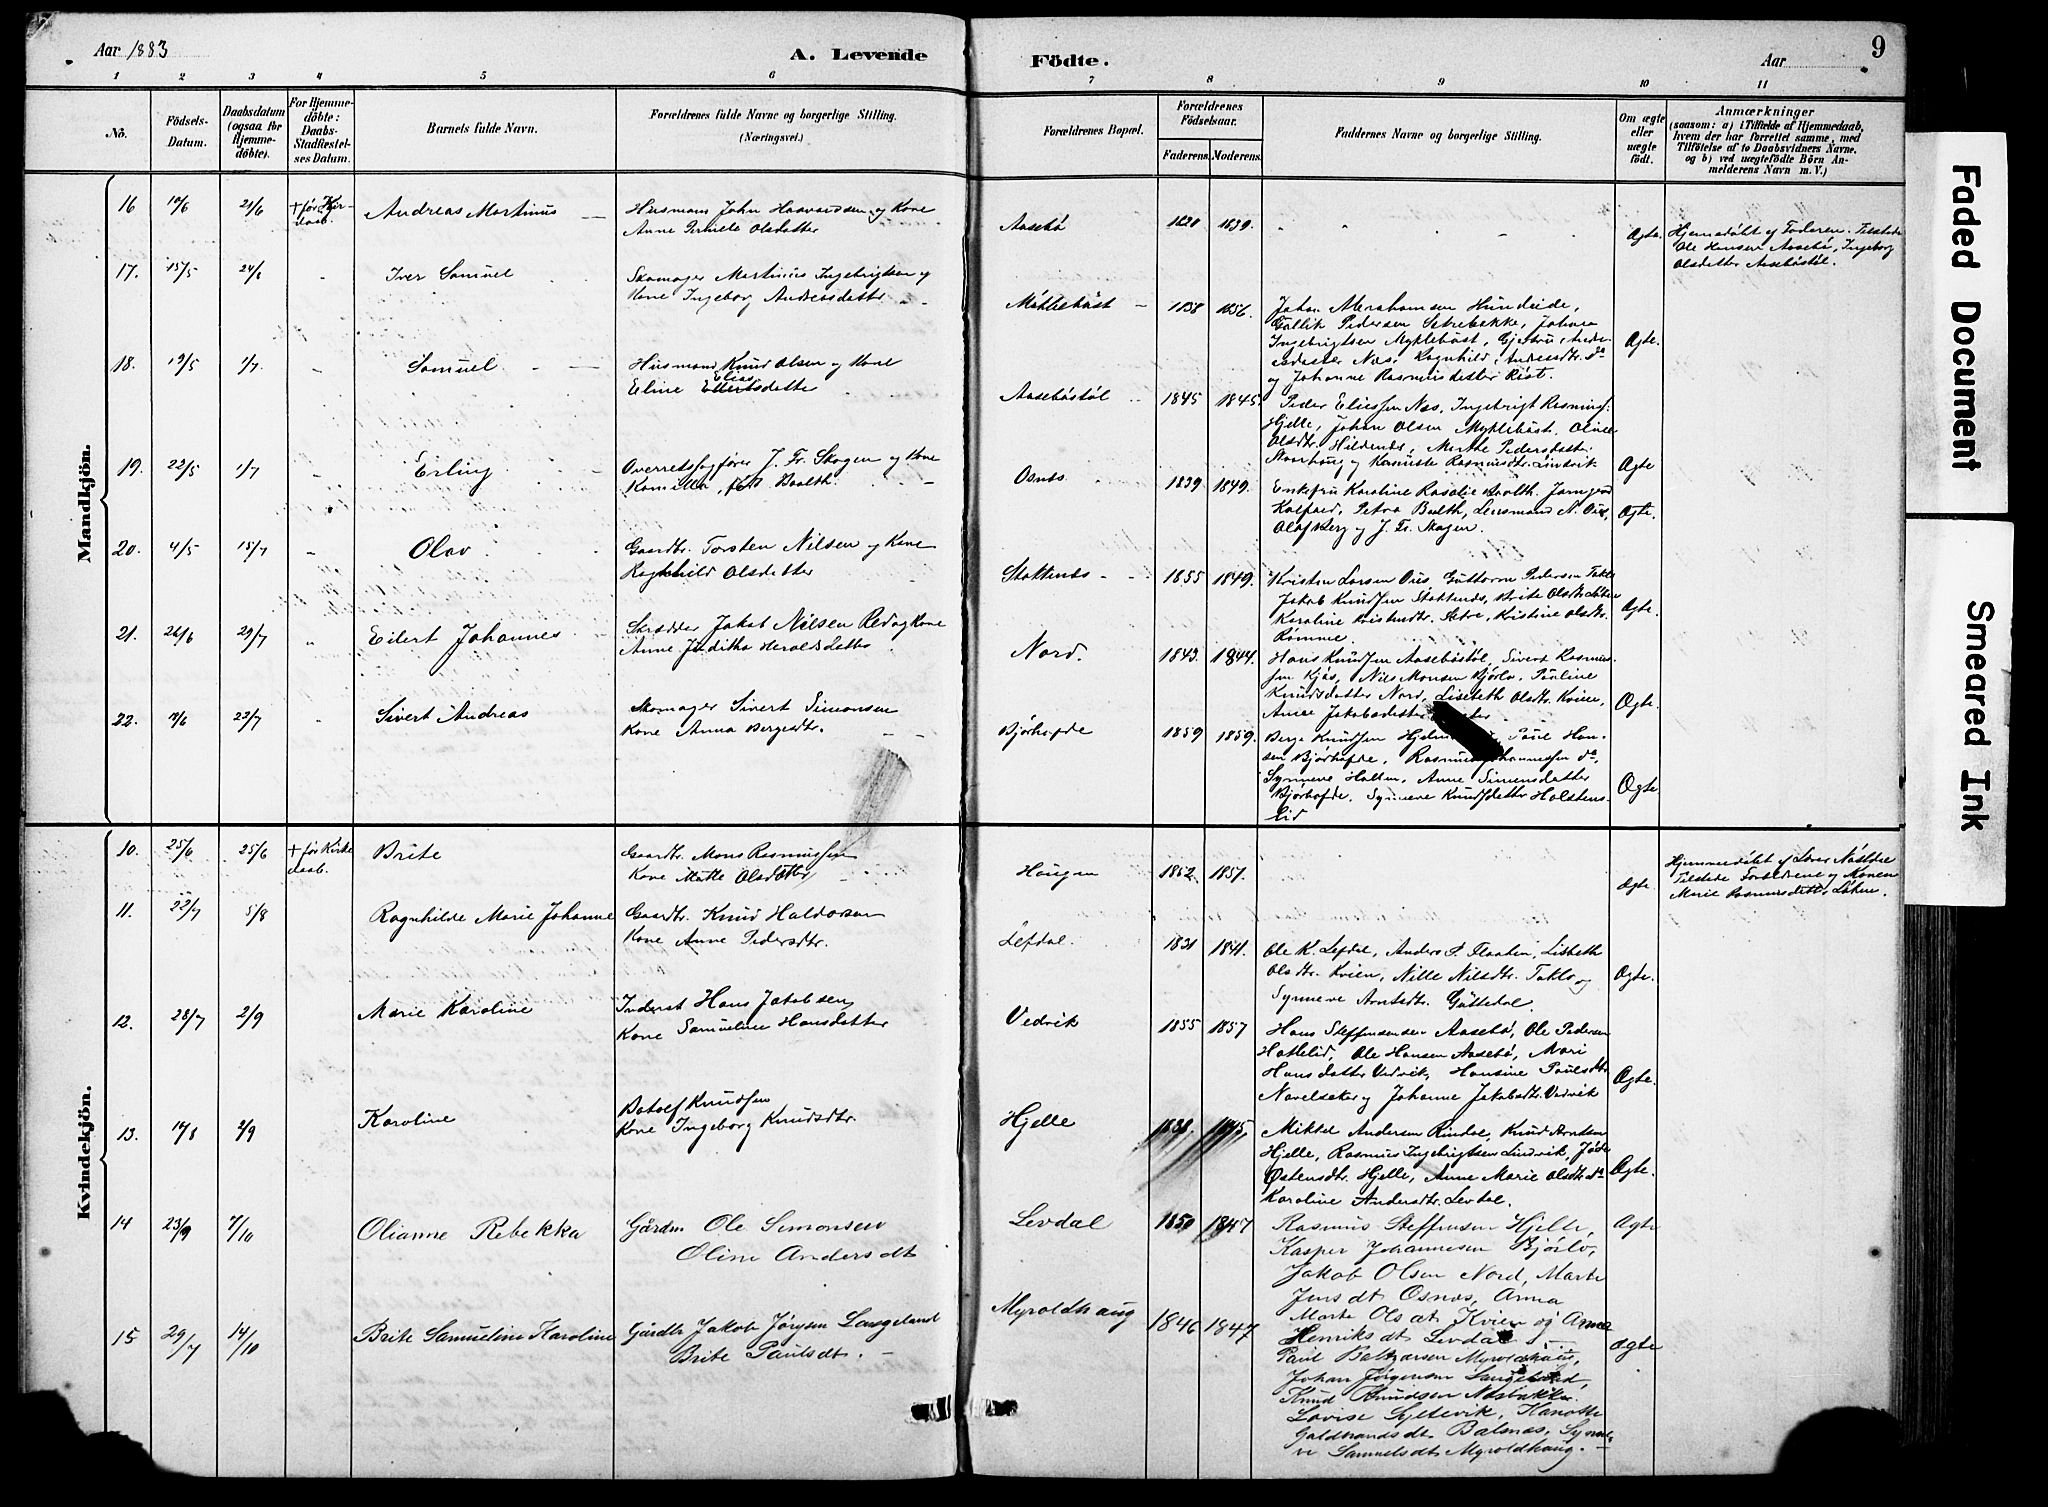 Aar 1883
A. Levende
Födte.
Aar
9
1 2 3 4 5 6 7 8 9 10 11
No.
Födsels-
Datum.
Daabsdatum
(ogsaa for
Hjemme-
döbte).
For Hjemme-
döbte:
Daabs-
Stadfæstel-
ses Datum.
Barnets fulde Navn.
Forældrenes fulde Navne og borgerlige Stilling.
(Næringsvei.)
Forældrenes Bopæl.
Forældrenes
Födselsaar.
Faderens. Moderens.
Faddernes Navne og borgerlige Stilling.
Om ægte
eller
uægte
födt.
Anmærkninger
(saasom: a) i Tilfælde af Hjemmedaab,
hvem der har forrettet samme, med
Tilföielse af to Daabsvidners Navne.
og b) ved uægtefödte Börn An-
melderens Navn m. V.)
Mandkjön.
16 21/6 + før Kir-
daab.
Andreas Martinus
Husmand John Haavardsen og Kone
Anne Pernele Olsdatter
Aasebø 1820 1839.
Ægte.
Hjemmedøbt af Faderen. Tilstede
Ole Hansen Aasebø, Ingeborg
Olsdatter Aasebøstøl.
17. 15/5 24/6
Iver Samuel
Skomager Martinus Ingebrigtsen og
Kone Ingeborg Andreasdatter
Myklebust 1858 1856.
Johan Abrahamsen Hundeide,
Gullik Pedersen Sætrebakke, Johan
Ingebrigtsen Myklebust, Gjertru Andre-
asdatter Næs, Ragnhild Andreasdtr. do
og Johanne Rasmusdatter Røst.
Ægte.
18. 19/5 1/7
Samuel
Husmand Knud Olsen og Kone
Eline Eliasdatter
Aasebøstøl 1845 1845.
Peder Eliassen Næs, Ingebrigt Rasmuss.
Hjelle, Johan Olsen Myklebust. Oline
Olsdtr. Hildenes, Marthe Pedersdatt.
Ægte
19. 22/5 1/7
Erling
Overretssagfører J. Fr. Skogen og Kone
Kamilla, født Baalth.
Osnes 1839 1849.
Enkefru Karoline Rosalie Baalth. Jomfru
Petra Baalth, Lensmand N. Ous,
Olaf Berg og J. Fr. Skogen.
Ægte.
20. 4/5 15/7
Olav
Gaardbr. Torsten Nilsen og Kone
Ragnhild Olsdatter
Stokkenes 1855 1849.
Kristen Larsen Ous, Guttorm Pedersen Takle
Jakob Knudsen Stokkenes, Brite Olsdtr.
Karoline Kristendtr. Sætre, Kristine Olsdtr.
Rømme.
Ægte.
21. 26/6 29/7
Eilert Johannes
Skrædder Jakob Nilsen Red og Kone
Anne Juditha Heraldsdatter
Nord. 1843. 1844.
Hans Knudsen Aasebøstøl, Sivert Rasmus-
sen Kjøs, Nils Monsen Bjørlo. Pauline
Knudsdatter Nord, Lisebeth Olsdtr. Kvien,
Anne Jakobsdatter
Ægte.
22. 7/6 22/7
Sivert Andreas
Skomager Sivert Simonsen
Kone Anna Bergesdtr.
Bjørhofde 1859 1859.
Berge Knudsen Paul Han-
sen Bjørhofde, Rasmus Johannessen do,
Synneve Holten, Anne Simensdatter
Bjørhofde. Synneve Knudsdatter Holstens-
lid
Ægte.
Kvindekjön.
10. 25/6 25/6 + før Kirke
daab.
Brite
Gaardbr. Mons Rasmussen
Kone Malle Olsdatter
Haugen 1852. 1857.
Ægte.
Hjemmedøbt af Lærer
Tilstede Forældrene og Konen
Marie Rasmusdatter Løken.
11. 22/7 5/8
Ragnhilde Marie Johanne
Gaardbr. Knud Haldorsen
Kone Anne Pedersdtr.
Lefdal. 1831 1841.
Ole K. Lefdal, Anders P. Flaaten, Lisbeth
Olsdtr. Kvien, Nille Nilsdtr. Taklo og
Synneve Arntsdtr. Guttedal.
Ægte.
12. 28/7 2/9
Marie Karoline
Inderst Hans Jakobsen
Kone Samueline Hansdatter
Vedvik 1855 1857
Hans Steffensen Aasebø, Ole Pedersen
Hattelid, Ole Hansen Aasebø, Mari
Hansdatter Vedvik, Hansine Paulsdtr.
Navelsaker og Johanne Jakobsdtr. Vedvik
Ægte.
13. 14/8 2/9
Karoline
Botolf Knudsen
Kone Ingeborg Knudsdtr.
Hjelle 1838. 1845,
Mikkel Andersen Rindal, Knud Arntsen
Hjelle, Rasmus Ingebrigtsen Lindvik,
Østensdtr. Hjelle, Anne Marie Olsdtr. do
Karoline Andersdtr. Levdal.
Ægte.
14 23/9 7/10
Olianne Rebekka
Gårdm Ole Simonsen
Oline Andersdt
Levdal 1850 1847
Rasmus Steffensen Hjelle,
Kasper Johannesen Bjørlo,
Jakob Olsen Nord, Marte
Jensdt Osnes, Anna
Marte Olsdt Kvien og Anne
Henriksdt Levdal.
Ægte
15 29/7 14/10
Brite Samueline Karoline
Gårdbr Jakob Jørgsen Langeland
Brite Paulsdt.
Myroldhaug 1846 1847
Paul Baltzarsen Myroldhaug,
Johan Jørgensen Langeland,
Knud Knudsen Nesbakke.
Lovise Syltevik, Hanotte
Galdhandsdt Balsnes, Synne-
ve Samuelsdt Myroldhaug.
Ægte
Faded Document
Smeared Ink